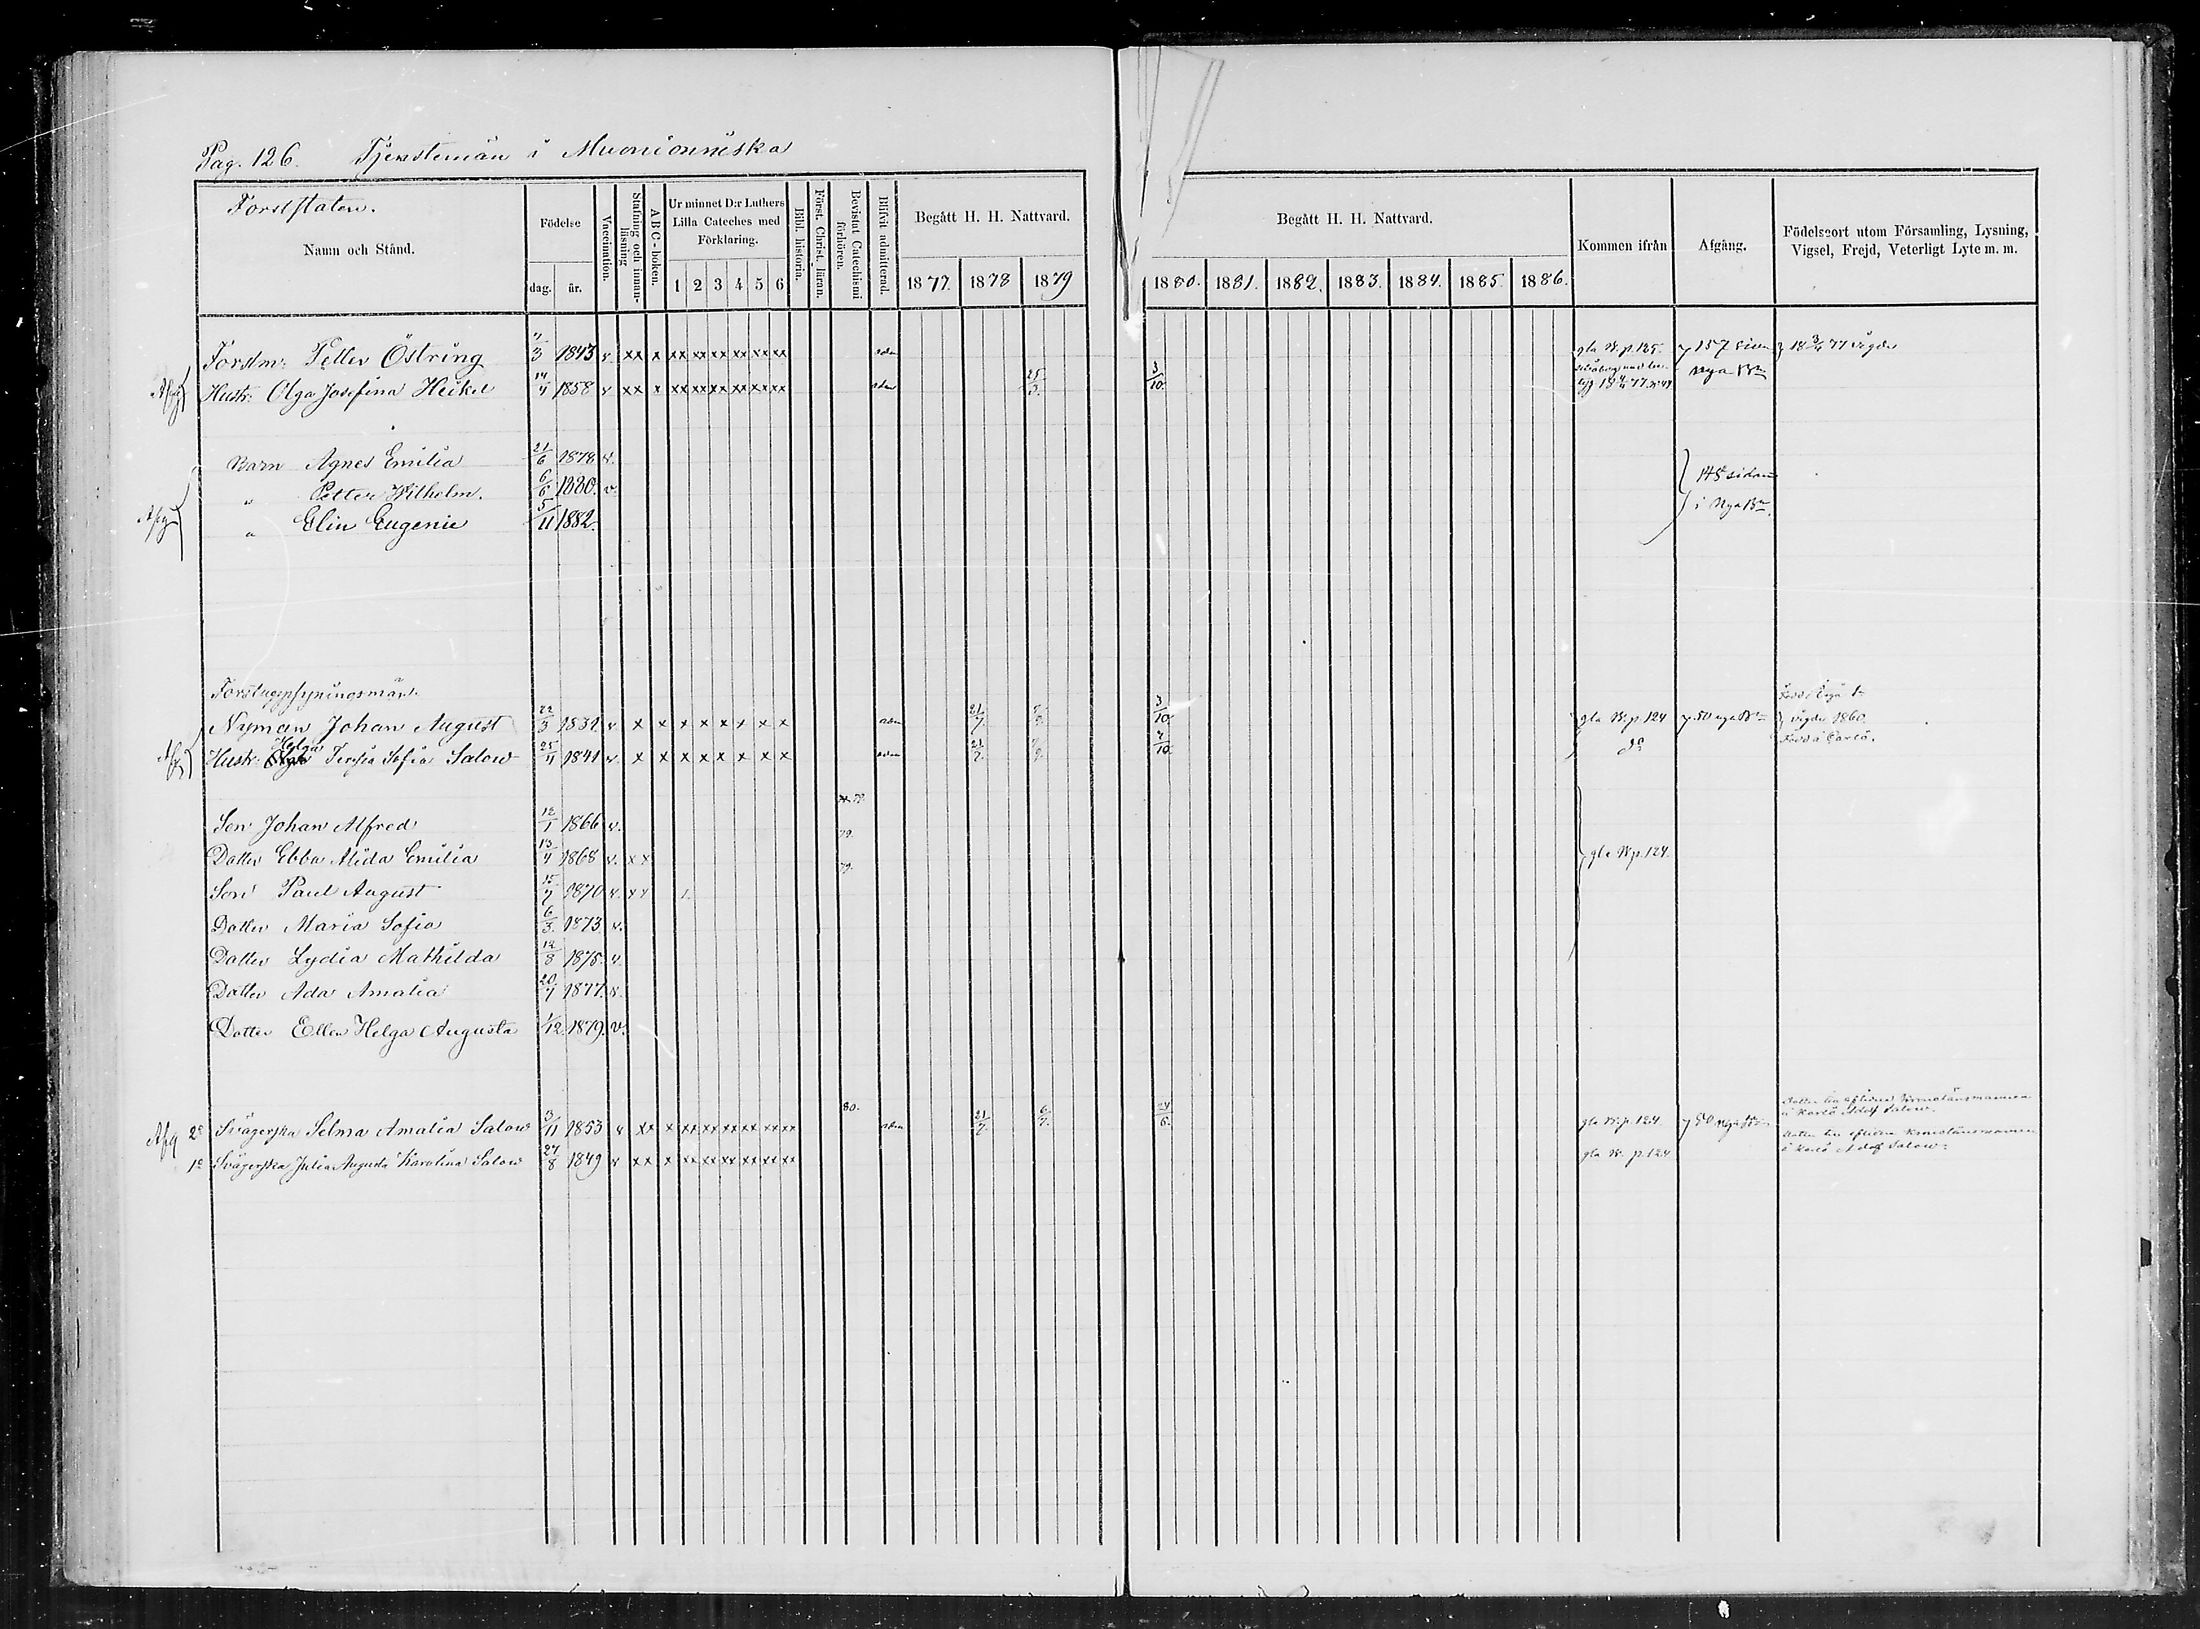 Pag. 126. Tjenstemän i Muonionniska
Forststaten.
Namn och Stånd.
Födelse
dag. år.
Vaccination.
Stafning och innanläsning
ABC-boken.
Ur minnet D:r Luthers Lilla Cateches med Förklaring.
1 2 3 4 5 6
Bibl. historia.
Först. Christ. läran.
Bevistat Catechismi förhören.
Blifvit admitterad.
Begått H. H. Nattvard.
1877. 1878 1879
Begått H. H. Nattvard.
1880. 1881. 1882. 1883. 1884. 1885. 1886.
Kommen ifrån
Afgång.
Födelseort utom Församling, Lysning, Vigsel, Frejd, Veterligt Lyte m. m.
Forstm: Petter Östring 1843 v. xx x xx xx xx xx xx xx adm gla B. p. 125. 157 sidan vigde
Afg Hustr: Olga Josefina Heikel 14/4 1858 v xx x xx xx xx xx xx xx adm 25/3. 3/10. Nya Bn
Barn Agnes Emilia 21/6 1878 v.
" Petter Wilhelm. 6/6 1880. v. 148 sidan
Afg " Elin Eugenie 5/11 1882. i Nya Bn.
Forstuppsyningsmän.
Nyman Johan August 22/3 1832 v. x x x x x x x x adm 21/7 3/10. gla B. p 124 50 nya Bn vigde 1860.
Afg Hustr: Helga Teresia Sofia Salow 25/4 1841 v. x x x x x x x x adm 21/7. 7/10. do Född i Carlö.
Son Johan Alfred 12/1 1866 v. 79.
Dotter Ebba Alida Emilia 13/4 1868 v. x x 79. gla B. p. 124.
Son Paul August 15/7 1870 v. x x 1.
Dotter Maria Sofia 6/3. 1873. v.
Dotter Lydia Mathilda 12/8 1875. v.
Dotter Ada Amalia 20/7 1877. v.
Dotter Ellen Helga Augusta 1/12. 1879. v.
80.
Afg 2o Svägerska Selma Amalia Salow 3/11 1853 v xx x xx xx xx xx xx xx adm 21/7. 6/7. 24/6. gla B. p 124 50 nya Bn Dotter till aflidne Kronolänsmannen i Karlö Adolf Salow.
1o Svägerska Julia Augusta Karolina Salow 27/8 1849 v xx x xx xx xx xx xx xx gla B. p. 124 Dotter till aflidne Kronolänsmannen i Karlö Adolf Salow.